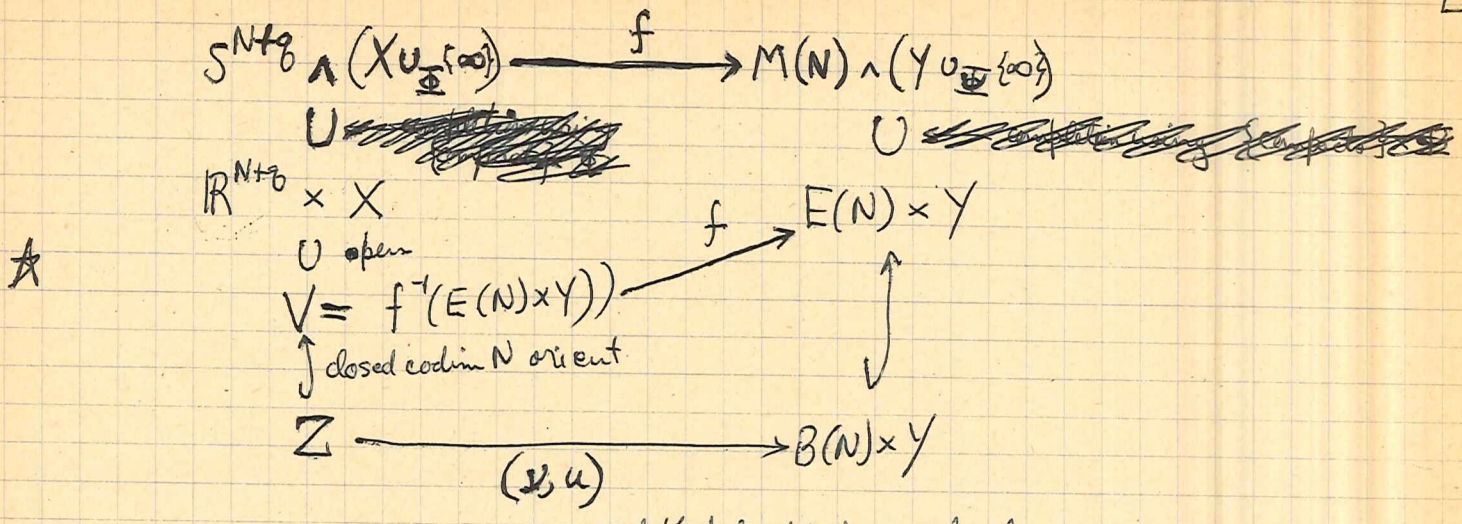 f
S^{N+q} ∧ (X ∪_Φ {∞}) → M(N) ∧ (Y ∪_Φ {∞})
∪ ∪
ℝ^{N+q} × X
f E(N) × Y
∪ open
☆
V = f^{-1}(E(N)×Y))
closed codim N orient
Z → B(N)×Y
(ν, u)